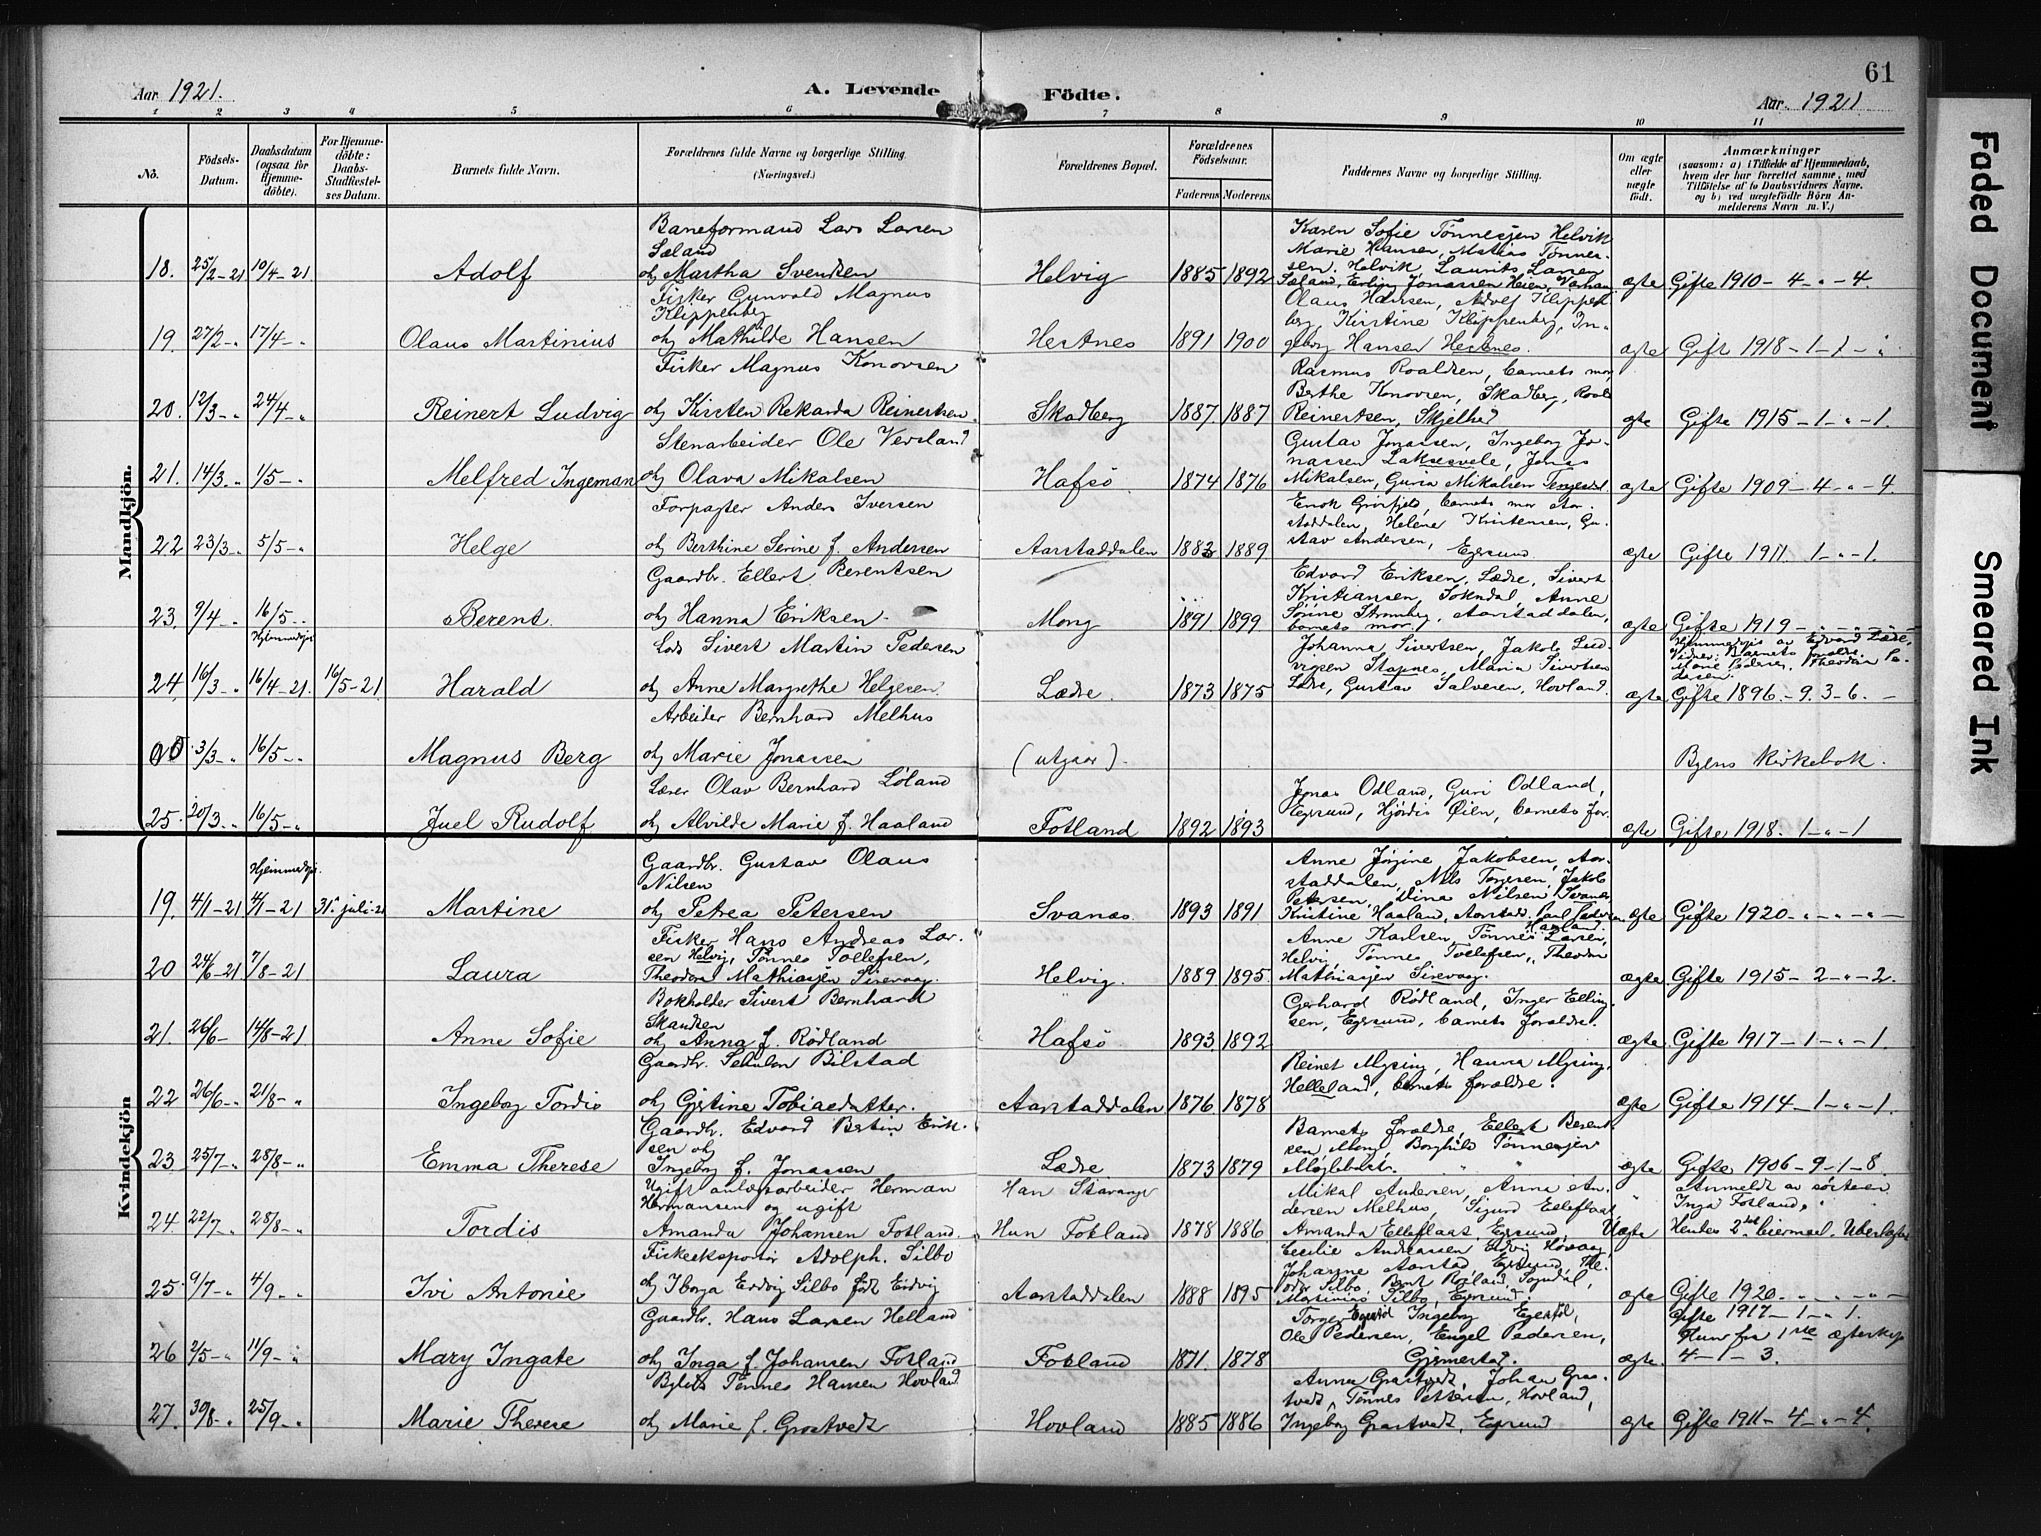 61
Aar 1921.
A. Levende
Födte.
Aar. 1921
1 2 3 4 5 6 7 8 9 10 11
No.
Födsels-Datum.
Daabsdatum (ogsaa for Hjemme-döbte).
For Hjemme-döbte: Daabs-Stadfæstel-ses Datum.
Barnets fulde Navn.
Forældrenes fulde Navne og borgerlige Stilling. (Næringsvei.)
Forældrenes Bopæl.
Forældrenes Födselsaar.
Faderens Moderens
Faddernes Navne og borgerlige Stilling.
Om ægte eller uægte födt.
Anmærkninger
(saasom: a) i Tilfælde af Hjemmedaab,
hvem der har forrettet samme, med
Tilföielse af to Daabsvidners Navne.
og b) ved uægtefödte Börn An-
melderens Navn m. V.)
Mandkjön.
Baneformand Lars Larsen
Sæland
18. 25/2-21 10/4-21. Adolf og Martha Svendsen Helvig 1885 1892
Karen Sofie Tønnesjen Helvik
Marie Hansen, Mathias Tønne-
sen. Helvik, Laurits Larsen
Sæland, Erling Jonassen Heien, Varhaug
ægte Gifte 1910 - 4 - " - 4.
Fisker Gunvald Magnus
Klippenberg
19. 27/2-" 17/4-" Olaus Martinius og Mathilde Hansen Hestnes 1891 1900
Olaus Hansen, Adolf Klippen
berg, Kirstine Klippenberg, In-
geborg Hansen Hestnes.
ægte Gifte 1918 - 1 - 1 - "
Fisker Magnus Konovsen
20. 12/3-" 24/4-" Reinert Ludvig og Kirsten Rekarda Reinertsen Skadberg 1887. 1887
Rasmus Roaldsen, barnets mor,
Berthe Konovsen, Skadberg, Roald
Reinertsen, Skjelbred
ægte Gifte 1915 - 1 - " - 1.
Stenarbeider Ole Versland
21. 14/3-" 1/5-" Melfred Ingeman og Olava Mikalsen Hafsø 1874 1876
Gustav Jonassen, Ingeborg Jo-
nassen Laksesvele, Jonas
Mikalsen, Guria Mikalsen Tengesdal.
ægte Gifte 1909 - 4 - " - 4.
Forpagter Anders Iversen
22 23/3-" 5/5-" Helge og Berthine Serine f. Andersen Aarstaddalen 1883 1889
Enok Grøsfjeld, barnets mor Aar-
staddalen, Helene Kristensen, Gu-
stav Andersen, Egersund.
ægte Gifte 1911. 1 - " - 1.
Gaardbr. Ellert Berentsen
23. 9/4-" 16/5-" Berent. og Hanna Eriksen Mong 1891. 1899
Edvard Eriksen, Lædre, Sivert
Kristiansen, Sokndal Anne
Sørine Stromberg, Aarstaddalen,
barnets mor.
ægte Gifte 1919 - " - " - " -
Hjemmedøpt
Lods Sivert Martin Pedersen
24. 16/3-" 16/4-21. 16/5-21 Harald og Anne Margrethe Helgesen. Lædre. 1873 1875
Johanna Sivertsen, Jakob Lud
vigsen Stapnes, Maria Sivertsen
Lædre, Gustav Salvesen, Hovland.
Hjemmedøpt av Edvard Lædre,
Vidner: Barnets forældre,
Marie Pedersen, Theodor Pe-
dersen.
ægte Gifte 1896 - 9. 3 - 6. -
Arbeider Bernhard Melhus
3/3-" 16/5-" Magnus Berg og Marie Jonassen (utgaar). Byens kirkebok.
Lærer Olav Bernhard Løland
25. 20/3-" 16/5-" Juel Rudolf og Alvilde Marie f. Haaland Fotland 1892 1893
Jonas Odland, Guri Odland,
Egersund, Hjørdis Øien, barnets for.
ægte Gifte 1918. 1 - " - 1
Kvindekjön
Hjemmedøpt.
Gaardbr. Gustav Olaus
Nilsen
19. 4/1-21 4/1-21 31. juli-21 Martine og Petrea Petersen Svanes 1893 1891
Anne Jørgine Jakobsen, Aar-
staddalen, Nils Torgersen, Jakob
Petersen, Dina Nilsen, Svanes
Kristine Haaland, Aarstad, Carl Pedersen
Haaland.
ægte Gifte 1920 - " - " - " -
Fisker Hans Andreas Lar-
sen Helvig, Tønnes Tollefsen,
20 24/6-21 7/8-21 Laura Theodora Mathiasjen Sirevaag. Helvig. 1889 1895.
Anne Karlsen, Tønnes Larsen,
Helvi, Tønnes Tollefsen, Theodora
Mathiasjen Sirevaag.
ægte Gifte 1915 - 2 - " - 2.
Bokholder Sivert Bernhard
Skaadsen
21. 26/6- 14/8-21 Anne Sofie og Anna f. Rødland Hafsø 1893 1892
Gerhard Rødland, Inger Elling
sen, Egersund, barnets forældre.
ægte Gifte 1917 - 1 - " - 1.
Gaardbr. Salulen Bilstad
22 26/6-" 21/8-" Ingeborg Tordis og Gjertine Tobiasdatter. Aarstaddalen 1876 1878
Reinet Mysing, Hanna Mysing,
Helleland, barnets forældre.
ægte Gifte 1914 - 1 - " - 1.
Gaardbr. Edvard Bertin Erik-
sen og
23 25/7-" 25/8-" Emma Therese Ingeborg f. Jonassen Lædre 1873 1879
Barnets forældre, Ellert Berent
sen, Mong, Borghild Tønnesjen
Møglebust. " "
ægte Gifte 1906 - 9 - 1 - 8.
Ugift anlægsarbeider Herman
Hermansen og ugift
24. 22/7-" 28/8-" Tordis Amanda Johansen Fotland.
Han Stavanger
Hun Fotland 1878 1886
Mikal Andersen, Anna An-
dersen Melhus, Sigurd Ellefsaas
Amanda Ellefsaas, Egersund,
Uægte
Anmeldt av søsteren
Inga Fotland.
Hendes 2det leiermaal.
Fiskeeksportør Adolph. Silbo
25 9/7-" 4/9 -" Ivi Antonie og Iborga Eidvig Silbo født Eidvig Aarstaddalen 1888 1895
Cecilie Andreassen Eidvig Hovaag,
Johanne Aarstad, Egersund, The-
odor Silbo, Berit Rosland, Sogndal,
Martinius Silbo, Egersund.
ægte Gifte 1920 - " - " - " -
Gaardbr. Hans Larsen Helland
26 2/5-" 11/9-" Mary Ingate og Inga f. Johansen Fotland Fotland 1871. 1878
Torger Egestøl Ingeborg Egestøl,
Ole Pedersen, Engel Pedersen,
Gjermestad.
ægte.
Gifte 1917 - 1 - " 1.
Hun fra 1ste ægteskap
4 - 1 - 3.
Tønnes Hansen Hovland
27. 30/8-" 25/9-" Marie Therese og Marie f. Grastvedt Hovland 1885 1886
Anna Grastvedt, Johan Gras-
tvedt, Tønnes Petersen, Hovland,
Ingeborg Grastvedt, Egersund
ægte Gifte 1911 - 4 - " - 4.
Faded Document
Smeared Ink